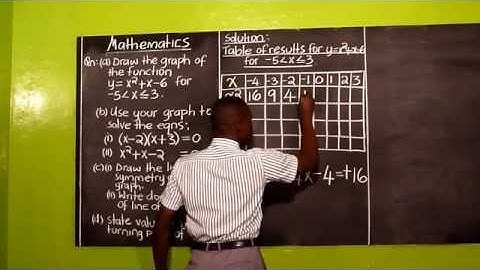 Mathematics
Qn: (a) Draw the graph of
the function
y = x² + x - 6 for
-5 < x ≤ 3.
(b) Use your graph to
solve the eqns;
(i) (x-2)(x+3) = 0
(ii) x² + x - 2
(c)(i) Draw the
symmetry
graph.
(ii) Write
of line of
(d) State
turning
Solution:
Table of results for y = x² + x - 6
for -5 < x ≤ 3
x -4 -3 -2 -1 0 1 2 3
x² 16 9 4
x -4 = +16